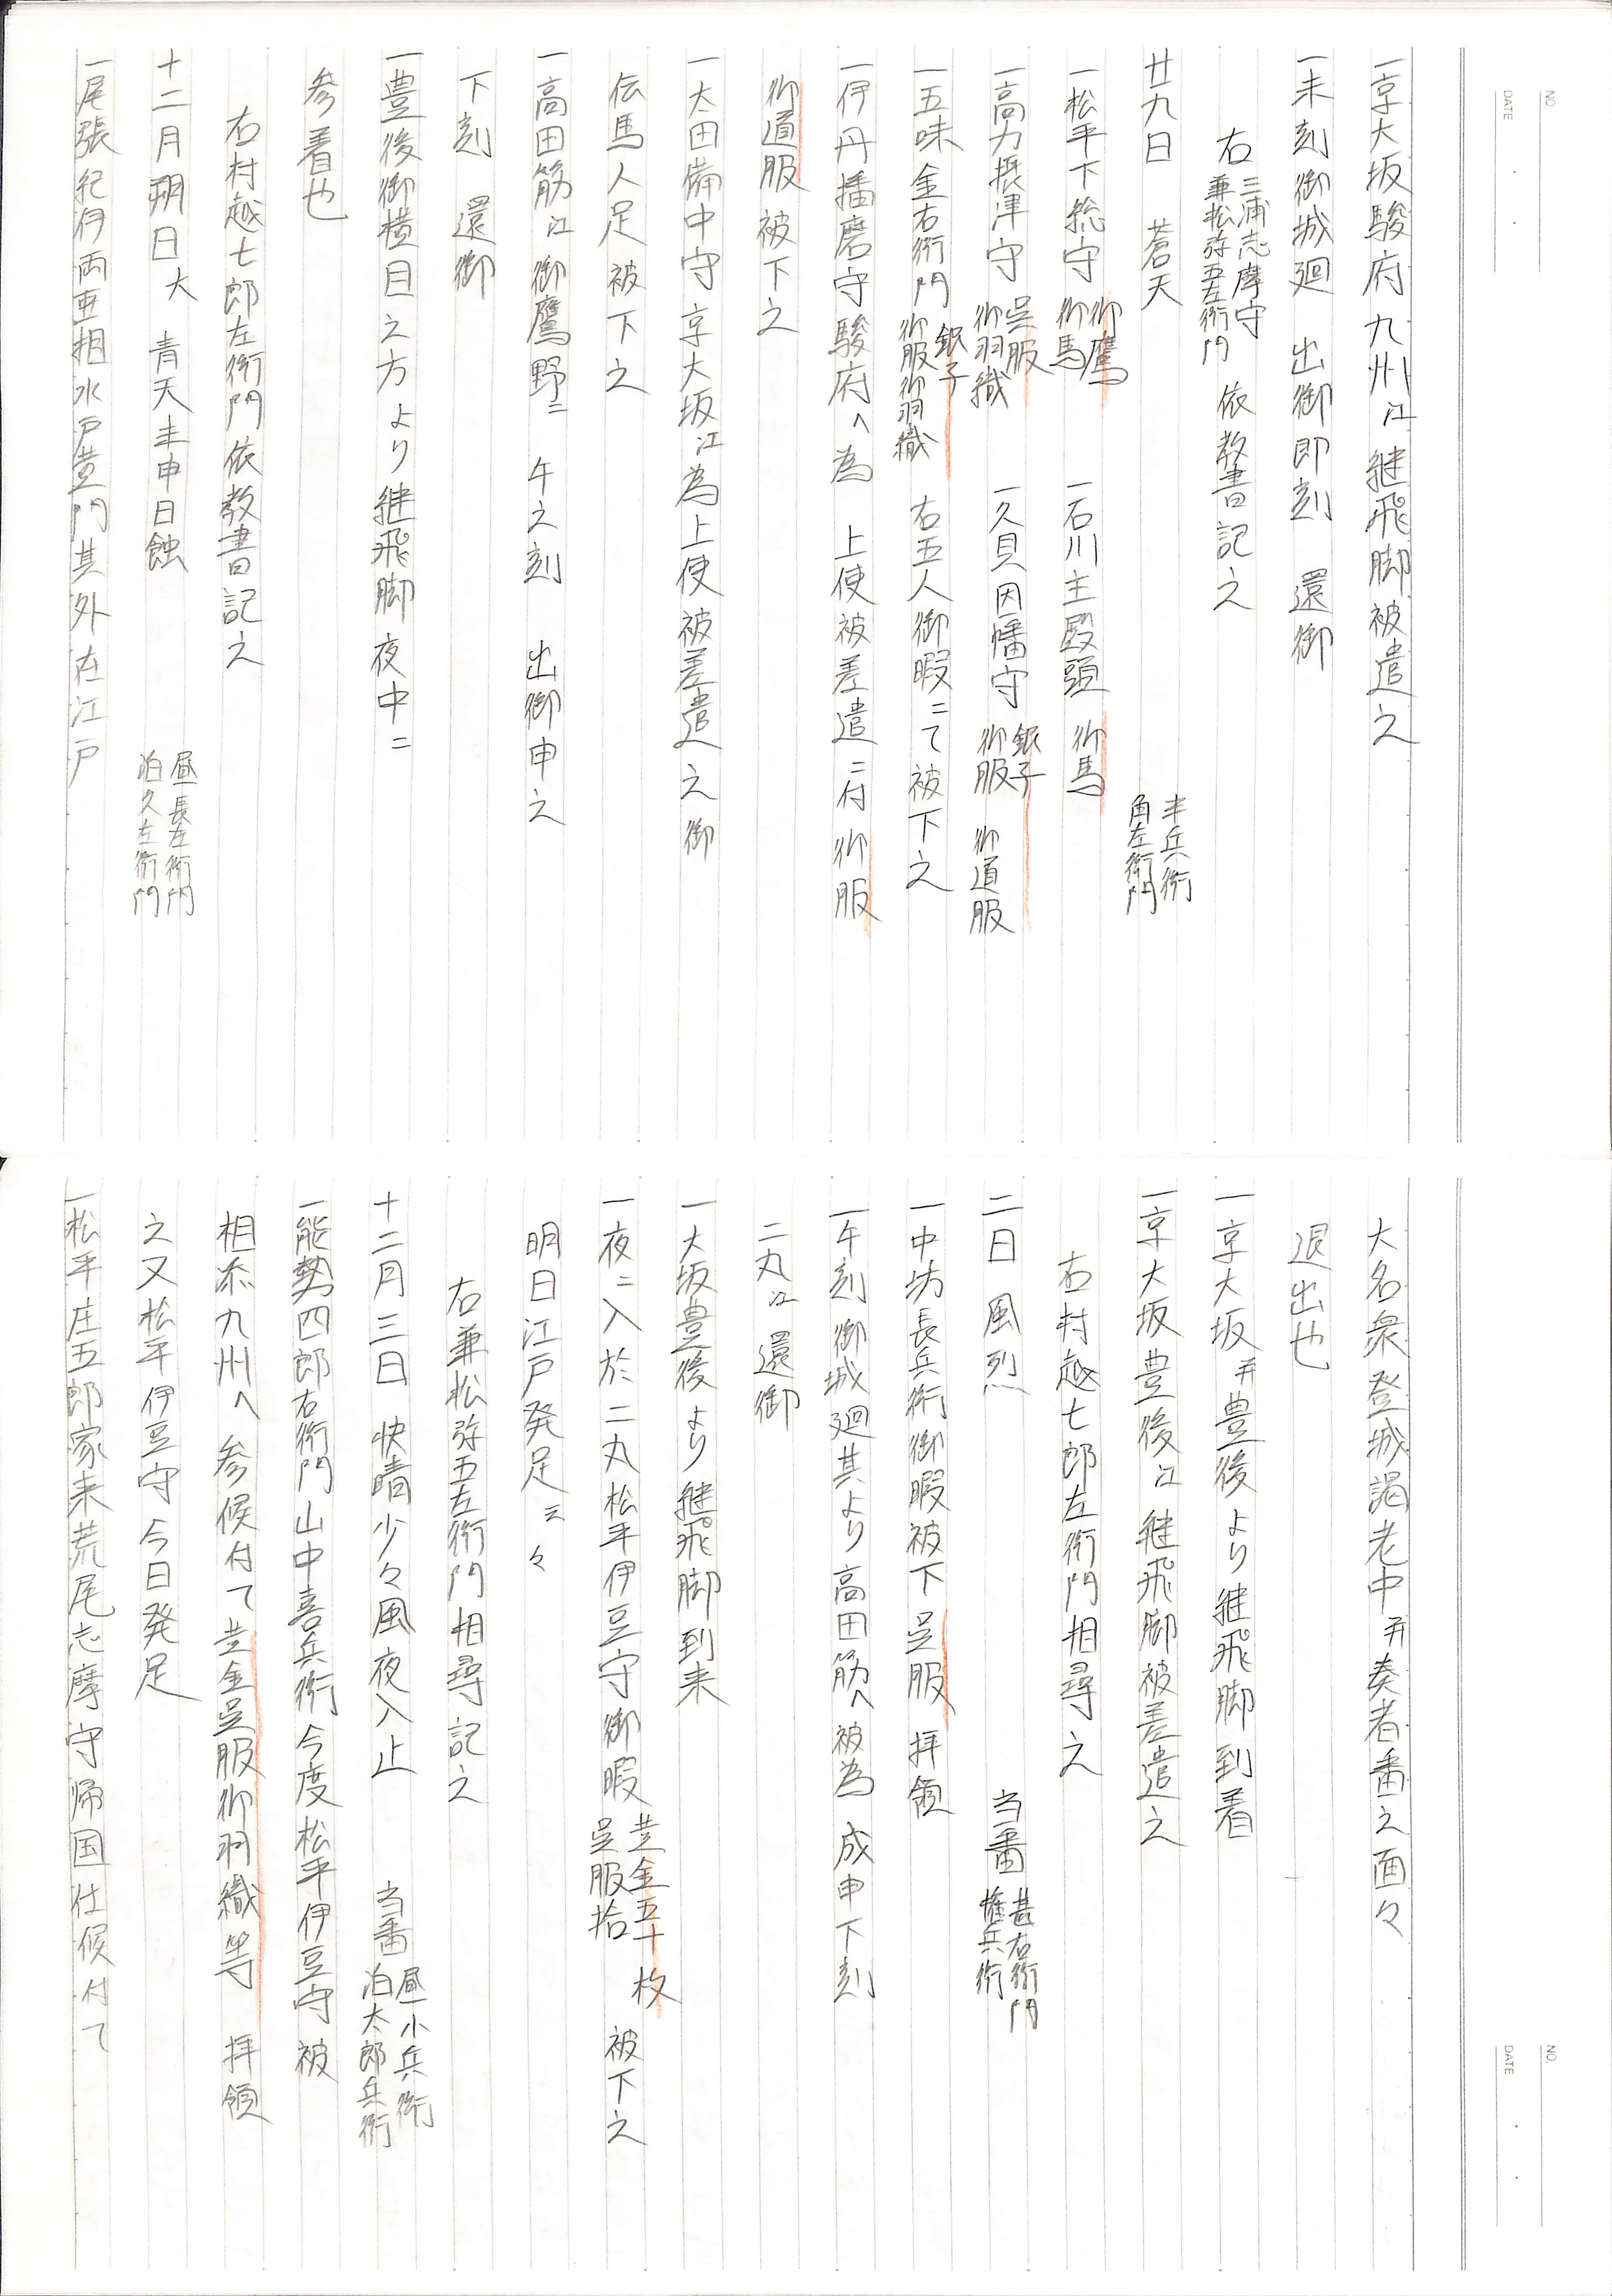 NO.
DATE
一京大坂駿府九州江継飛脚被遣之
一未刻御城廻 出御即刻 還御
右 三浦志摩守 兼松弥五左衛門 依教書記之
廿九日 蒼天 半兵衛 角左衛門
一松平下総守 御鷹 御馬 一石川主殿頭 御馬
一高力摂津守 呉服 御羽織 一久貝因幡守 銀子 御服 御道服
一五味金右衛門 銀子 御服御羽織 右五人御暇ニて被下之
一伊丹播磨守駿府へ為 上使被差遣ニ付御服
御道服被下之
一大田備中守京大坂江為上使被差遣之御
伝馬人足被下之
一高田筋江御鷹野ニ 午之刻 出御申之
下刻 還御
一豊後御横目之方より継飛脚夜中ニ
参着也
右村越七郎左衛門依教書記之
十二月朔日大 青天未申日蝕 昼長左衛門 泊久左衛門
一尾張紀伊両亜相水戸黄門其外在江戸
大名衆登城謁老中并奏者番之面々
退出也
一京大坂并豊後より継飛脚到着
一京大坂豊後江継飛脚被差遣之
右村越七郎左衛門相尋之
二日 風烈 当番 甚右衛門 権兵衛
一中坊長兵衛御暇被下呉服拝領
一午刻御城廻其より高田筋へ被為 成申下刻
二丸江還御
一大坂豊後より継飛脚到来
一夜ニ入於二丸松平伊豆守御暇 黄金五十枚 呉服拾 被下之
明日江戸発足云々
右兼松弥五左衛門相尋記之
十二月三日 快晴少々風夜入止 当番 昼小兵衛 泊太郎兵衛
一能勢四郎右衛門山中喜兵衛今度松平伊豆守被
相添九州へ参候付て黄金呉服御羽織等 拝領
之又松平伊豆守今日発足
一松平庄五郎家来荒尾志摩守帰国仕候付て
NO.
DATE